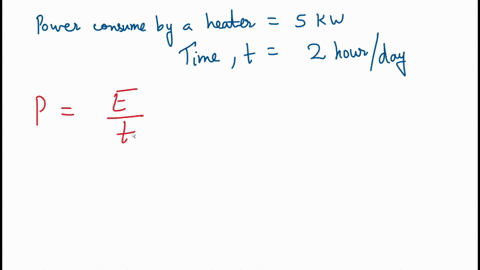 Power consume by a heater = 5 KW
Time, t = 2 hour/day
P = E/t